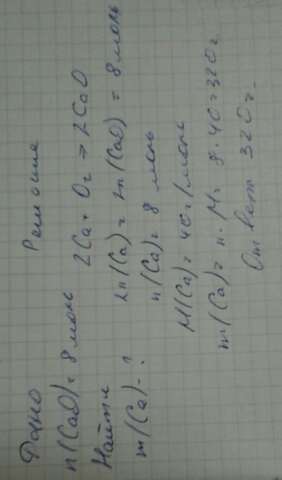 Дано
n(CaO) = 8 моль
Найти
m(Ca) - ?
Решение
2Ca + O2 = 2CaO
2n(Ca) = 2n(CaO) = 8 моль
n(Ca) = 8 моль
M(Ca) = 40 г/моль
m(Ca) = n · M = 8 · 40 = 320 г
Ответ 320г.